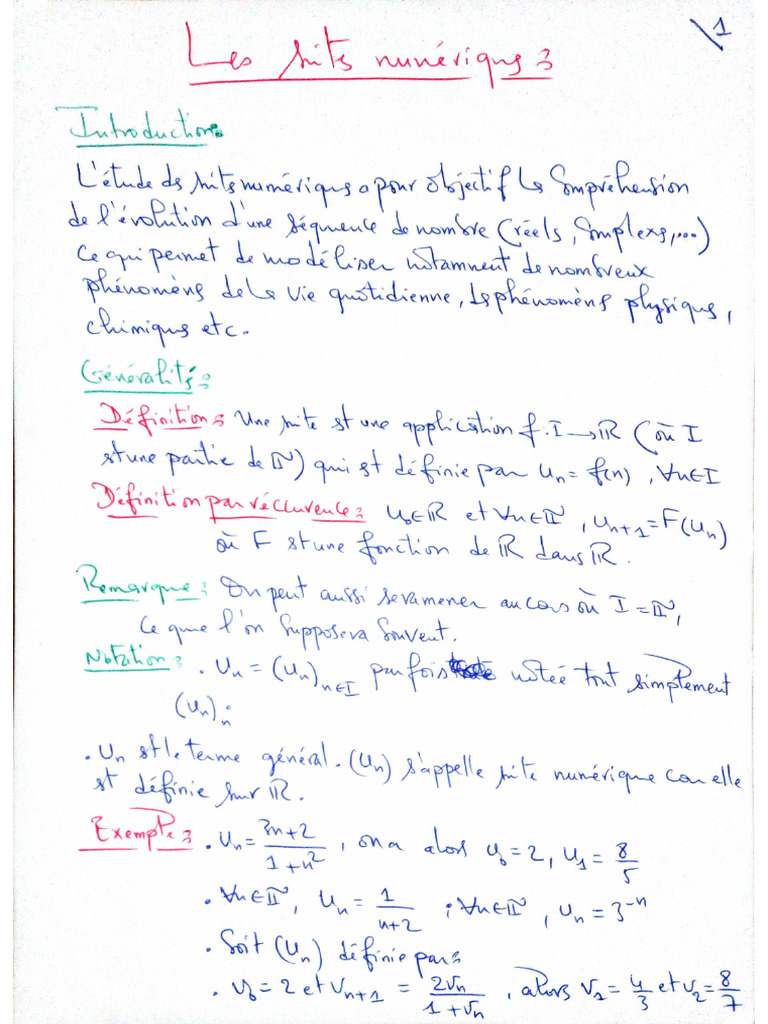 1
Les suites numériques :
Introduction :
L'étude des suites numériques a pour objectif la compréhension
de l'évolution d'une séquence de nombre (réels, complexes,...)
Ce qui permet de modéliser notamment de nombreux
phénomènes de la vie quotidienne, des phénomènes physiques,
chimiques etc.
Généralités :
Définition : Une suite est une application f : I → ℝ (où I
est une partie de ℕ) qui est définie par Uₙ = f(n), ∀n∈I
Définition par réccurence : U₀∈ℝ et ∀n∈ℕ, Uₙ₊₁ = F(Uₙ)
où F est une fonction de ℝ dans ℝ.
Remarque : On peut aussi se ramener au cas où I = ℕ,
Ce que l'on supposera souvent.
Notation : . Uₙ = (Uₙ)ₙ∈I parfois notée tout simplement
(Uₙ)ₙ :
. Uₙ est le terme général. (Uₙ) s'appelle suite numérique car elle
est définie sur ℝ.
Exemple : . Uₙ = (3n+2)/(1+n²), on a alors U₀ = 2, U₁ = 8/5
. ∀n∈ℕ, Uₙ = 1/(n+2) ; ∀n∈ℕ, Uₙ = 3⁻ⁿ
. Soit (Uₙ) définie par :
. V₀ = 2 et Vₙ₊₁ = 2Vₙ/(1+Vₙ), alors V₁ = 4/3 et V₂ = 8/7